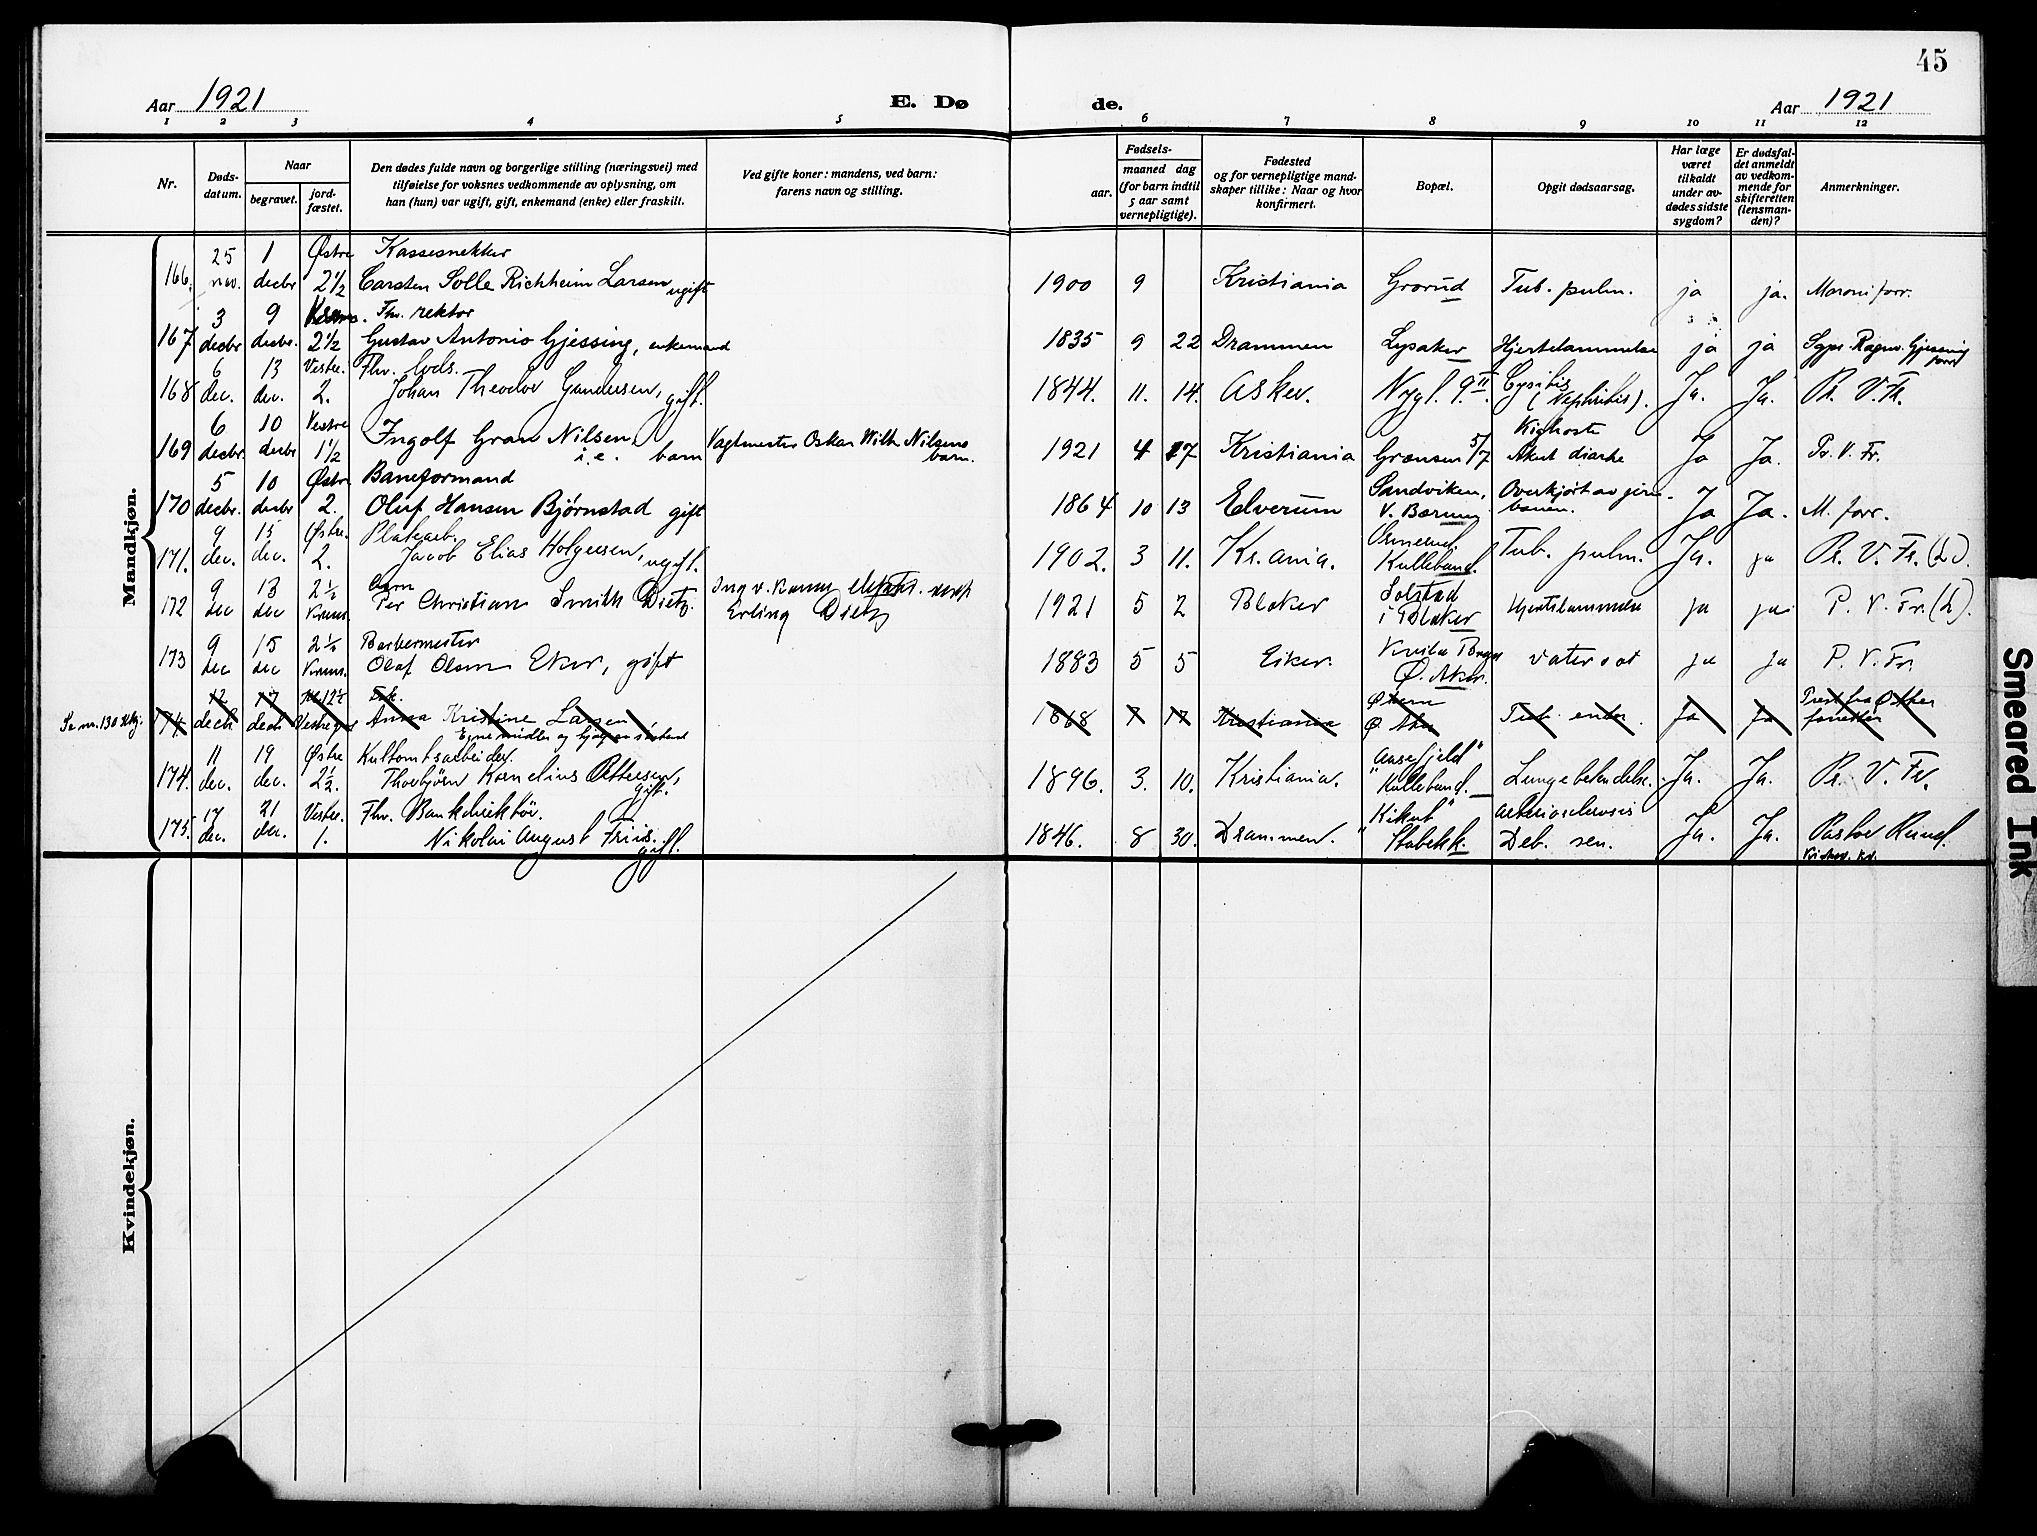 45
Aar 1921
E. Dø
de.
Aar 1921
1 2 3 4 5 6 7 8 9 10 11 12
Nr.
Døds-
datum.
Naar
begravet.
jord-
fæstet.
Den dødes fulde navn og borgerlige stilling (næringsvei) med
tilføielse for voksnes vedkommende av oplysning, om
han (hun) var ugift, gift, enkemand (enke) eller fraskilt.
Ved gifte koner: mandens, ved barn:
farens navn og stilling.
Fødsels-
aar.
maaned dag
(for barn indtil
5 aar samt
vernepligtige).
Fødested
og for vernepligtige mand-
skaper tillike: Naar og hvor
konfirmert.
Bopæl.
Opgit dødsaarsag.
Har læge
været
tilkaldt
under av-
dødes sidste
sygdom?
Er dødsfal-
det anmeldt
av vedkom-
mende for
skifteretten
(lensman-
den)?
Anmerkninger.
Mandkjøn.
25 1 Østre Kassesnekker
166. nov. decbr 2 1/2 Carsten Solle Richheim Larsen ugift 1900 9 Kristiania Grorud Tub. pulm. ja ja. Moroni forr.
3 9 Fhv. rektor
167 decbr decbr. 2 1/2 Gustav Antonio Gjessing, enkemand 1835 9 22 Drammen Lysaker Hjertelammelse ja ja Sgpr. Ragnv. Gjessing forr
6 13 Vestre. Fhv. lods.
168 dec. dec. 2. Johan Theodor Gundersen, gift. 1844. 11. 14. Asker. Nygt. 9 II. Cystitis (Nephritis). Ja. Ja. Pr. V. Fr.
6 10 Vestre Kighoste
169 decbr. decbr 1 1/2 Ingolf Gran Nilsen, i.e. barn Vagtmester Oskar Wilh Nilsens barn. 1921 4 17 Kristiania Grænsen 5/7 Akut diarhe Ja Ja. Pr. V. Fr.
5 10 Østre Baneformand Sandviken, Overkjørt av jern-
170 decbr. decbr 2. Oluf Hansen Bjørnstad gift 1864 10 13 Elverum V. Bærum banen. Ja Ja. M. forr.
9 15 Østre. Platearb.
171. dec. dec. 2. Jacob Elias Holgersen, ugift. 1902. 3 11. Kr.ania. Kulleband. Tub. pulm. Ja. ja Pr. V. Fr. (L).
9 13 2 1/2 Barn Solstad
172 dec dec Krem. Per Christian Smith Dietz. Erling Dietz 1921 5 2 Blaker i Blaker Hjertelammelse ja ja P. V. Fr. (L).
9 15 2 1/2 Barbermester
173 dec dec Krem. Olaf Olsen Eker, gift 1883 5 5 Eiker. Ø. Aker. vatersot ja ja P. V. Fr.
12 17 Kl 12 1/2 Frk. Økern
Se nr. 130 174. decb decb Vestre grav Anna Kristine Larsen 1868 7 17 Kristiania Ø. Aker Tub. enter. Ja Ja
Egne midler og hjulpen
11 19 Østre
174. dec. dec. 2 1/2. Thorbjørn Kornelius Ottersen, gift. 1896. 3. 10. Kristiania. "Aasefjeld" Kulleband. Lungebetendelse. Ja. Ja. Pr. V. Fr.
17 21 Vestre. Fhv. Bankdirektør. "Kikut" Arteriosclerosis
175. dec. dec. 1. Nikolai August Friis. gift. 1846. 8 30. Drammen. Stabekk. Deb. sen. Ja. Ja. Pastor Ruud.
Kvindekjøn.
Smeared Ink